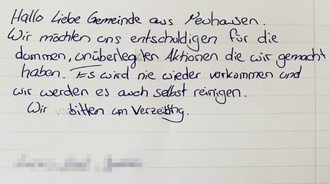 Hallo Liebe Gemeinde aus Neuhausen.
Wir möchten uns entschuldigen für die
dummen, unüberlegten Aktionen die wir gemacht
haben. Es wird nie wieder vorkommen und
wir werden es auch selbst reinigen.
Wir bitten um Verzeihung.